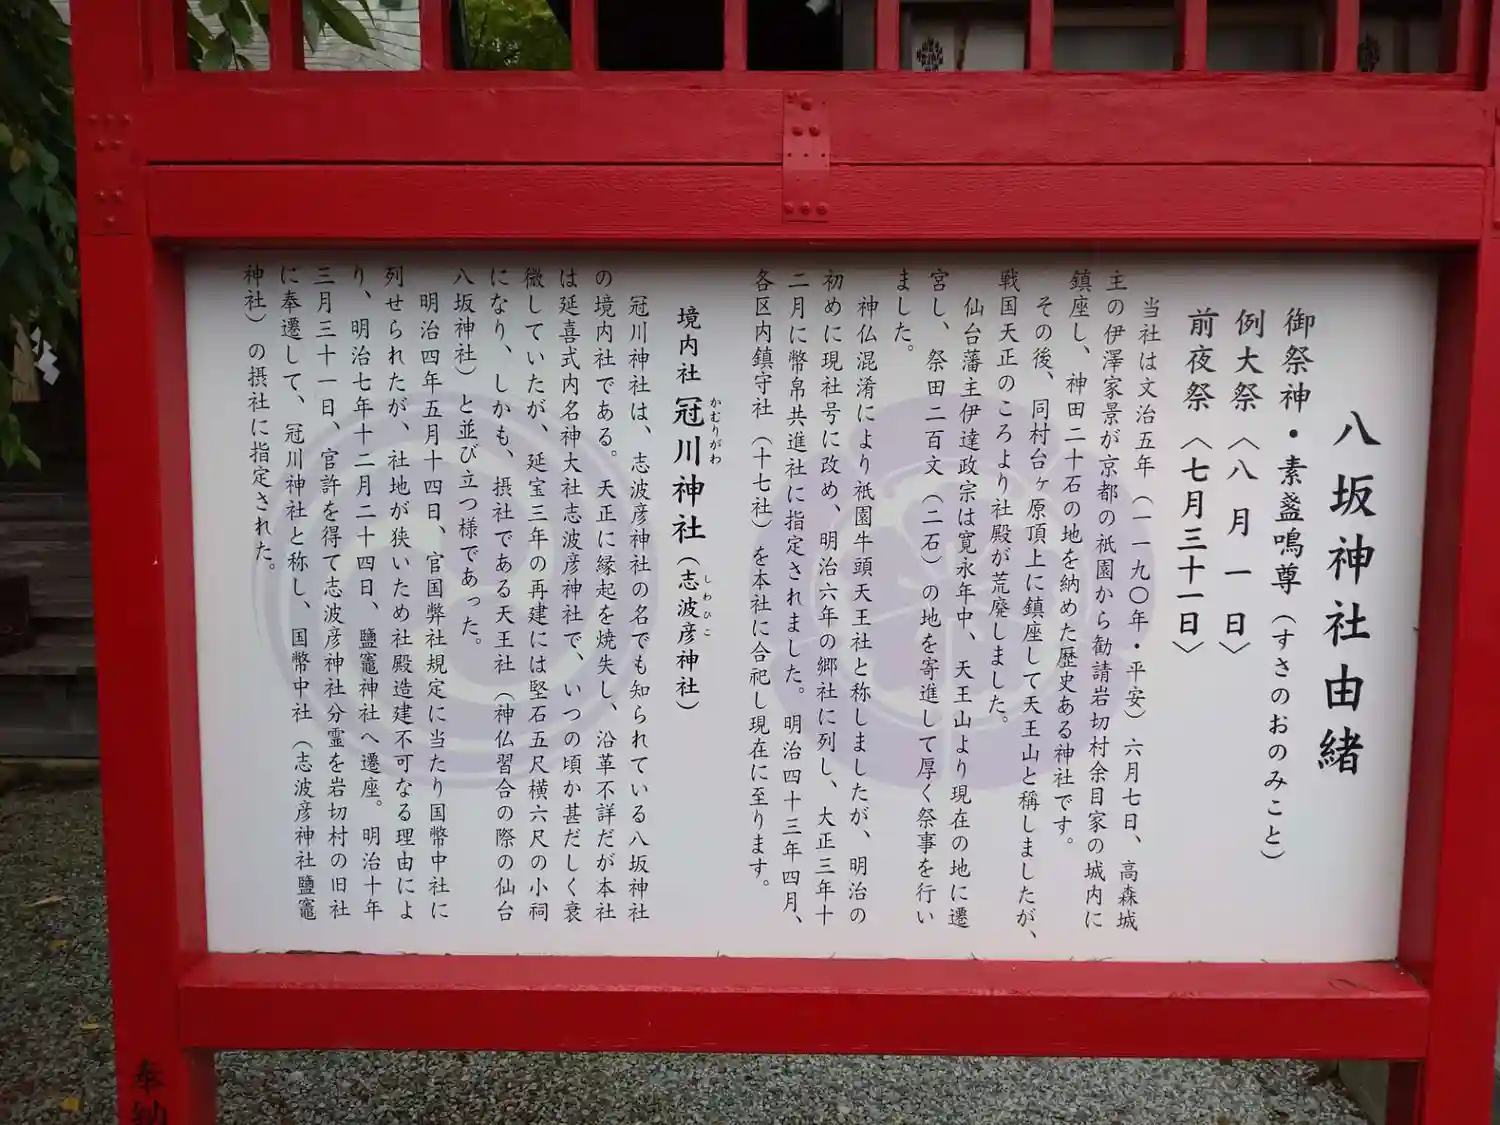 八坂神社由緒
御祭神・素盞鳴尊(すさのおのみこと)
例大祭〈八月一日〉
前夜祭〈七月三十一日〉
当社は文治五年(一一九〇年・平安)六月七日、高森城
主の伊澤家景が京都の祇園から勧請岩切村余目家の城内に
鎮座し、神田二十石の地を納めた歴史ある神社です。
その後、同村台ヶ原頂上に鎮座して天王山と稱しましたが、
戦国天正のころより社殿が荒廃しました。
仙台藩主伊達政宗は寛永年中、天王山より現在の地に遷
宮し、祭田二百文(二石)の地を寄進して厚く祭事を行い
ました。
神仏混淆により祇園牛頭天王社と称しましたが、明治の
初めに現社号に改め、明治六年の郷社に列し、大正三年十
二月に幣帛共進社に指定されました。明治四十三年四月、
各区内鎮守社(十七社)を本社に合祀し現在に至ります。
境内社 冠川神社(志波彦神社)
かむりがわ
しわひこ
冠川神社は、志波彦神社の名でも知られている八坂神社
の境内社である。天正に縁起を焼失し、沿革不詳だが本社
は延喜式内名神大社志波彦神社で、いつの頃か甚だしく衰
微していたが、延宝三年の再建には堅石五尺横六尺の小祠
になり、しかも、摂社である天王社(神仏習合の際の仙台
八坂神社)と並び立つ様であった。
明治四年五月十四日、官国弊社規定に当たり国幣中社に
列せられたが、社地が狭いため社殿造建不可なる理由によ
り、明治七年十二月二十四日、鹽竈神社へ遷座。明治十年
三月三十一日、官許を得て志波彦神社分霊を岩切村の旧社
に奉遷して、冠川神社と称し、国幣中社(志波彦神社鹽竈
神社)の摂社に指定された。
奉納